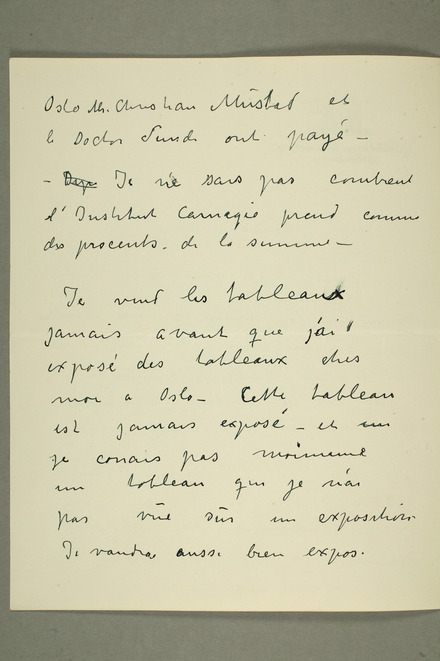 Oslo Mr. Christian Mustad et
le Doctor Sunde ont payé –
– Je ne sais pas combient
l'Institut Carnagie prend comme
des procents. de la summe –
Je vend les tableaux
jamais avant que j'ai
exposé des tableaux ches
moi a Oslo – Cette tableau
est jamais exposé – et un
je conais pas moimeme
un tableau que je n'ai
pas vüe sür un exposition
Je vandra aussi bien expos.